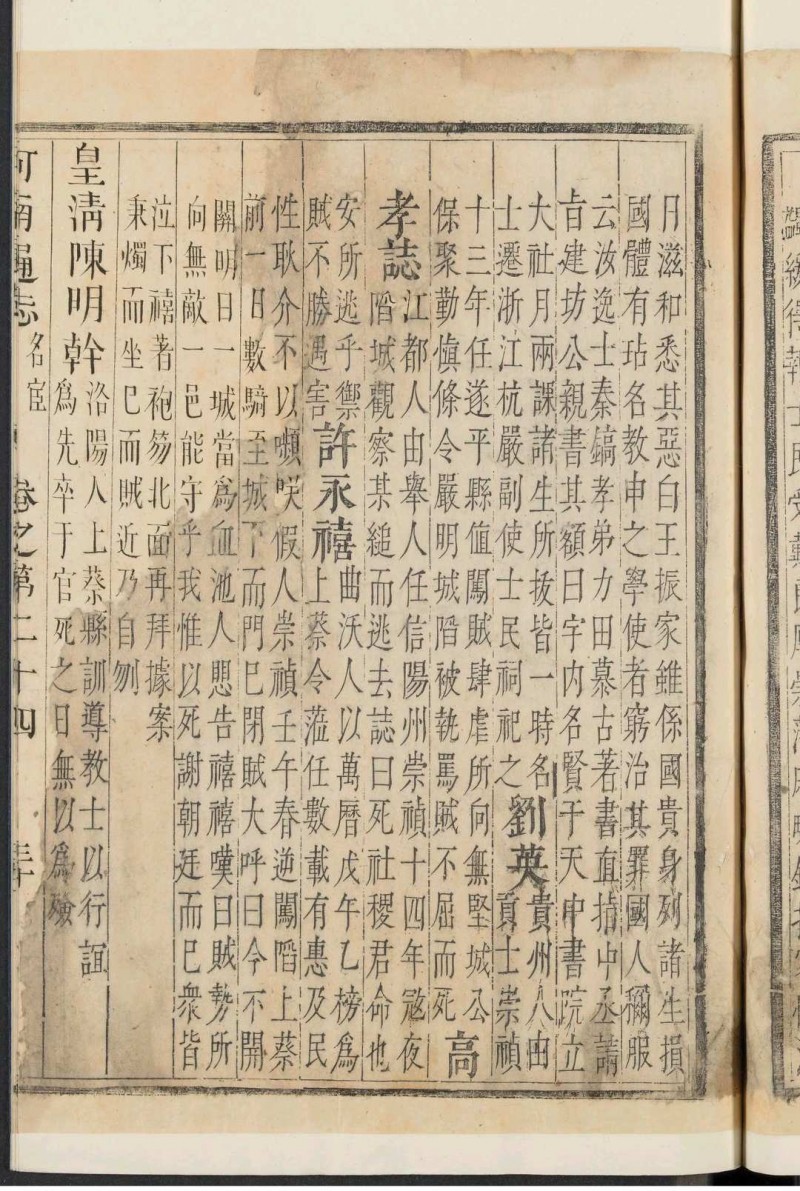 月滋和悉其惡白王振家雖係國貴身列諸生損
國體有玷名教申之學使者窮治其罪國人稱服
云汝逸士秦鎬孝弟力田慕古著書直指中丞請
旨建坊公親書其額曰宇内名賢于天中書院立
大社月兩課諸生所拔皆一時名
士遷浙江杭嚴副使士民祠祀之
劉英
貴州人由
貢士崇禎
十三年任遂平縣值闖賊肆虐所向無堅城公
保聚勤慎條令嚴明城陷被執罵賊不屈而死
高
孝誌
江都人由舉人任信陽州崇禎十四年寇夜
陷城觀察某縋而逃去誌曰死社稷君命也
安所逃乎禦
賊不勝遇害
許永禧
曲沃人以萬曆戊午乙榜為
上蔡令蒞任數載有惠及民
性耿介不以嚬咲假人崇禎壬午春逆闖陷上蔡
前一日數騎至城下而門已閉賊大呼曰今不開
關明日一城當為血池人愳告禧禧嘆曰賊勢所
向無敵一邑能守乎我惟以死謝朝廷而已衆皆
泣下禧著袍笏北面再拜據案
秉燭而坐已而賊近乃自刎
皇清陳明幹
洛陽人上蔡縣訓導教士以行誼
為先卒于官死之日無以為殮
河南通志
名宦
卷之第二十四